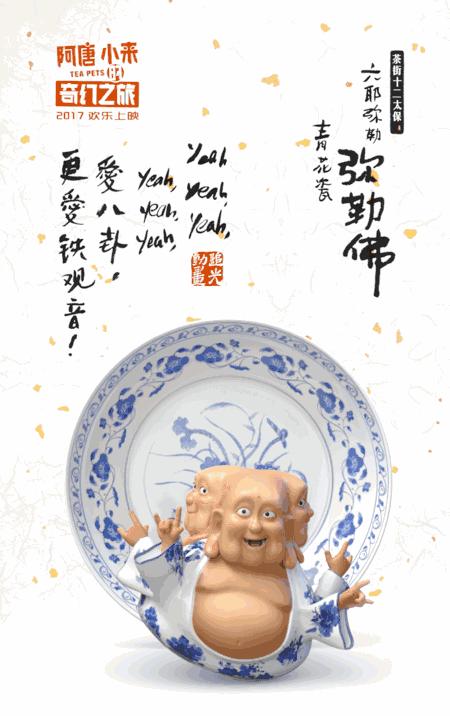 阿唐小来
TEA PETS 的
奇幻之旅
2017 欢乐上映
茶街十二太保
六耶弥勒
弥勒佛
青花瓷
Yeah
yeah,
yeah,
yeah,
yeah,
yeah,
愛八卦！
更愛铁观音！
追光
動畫